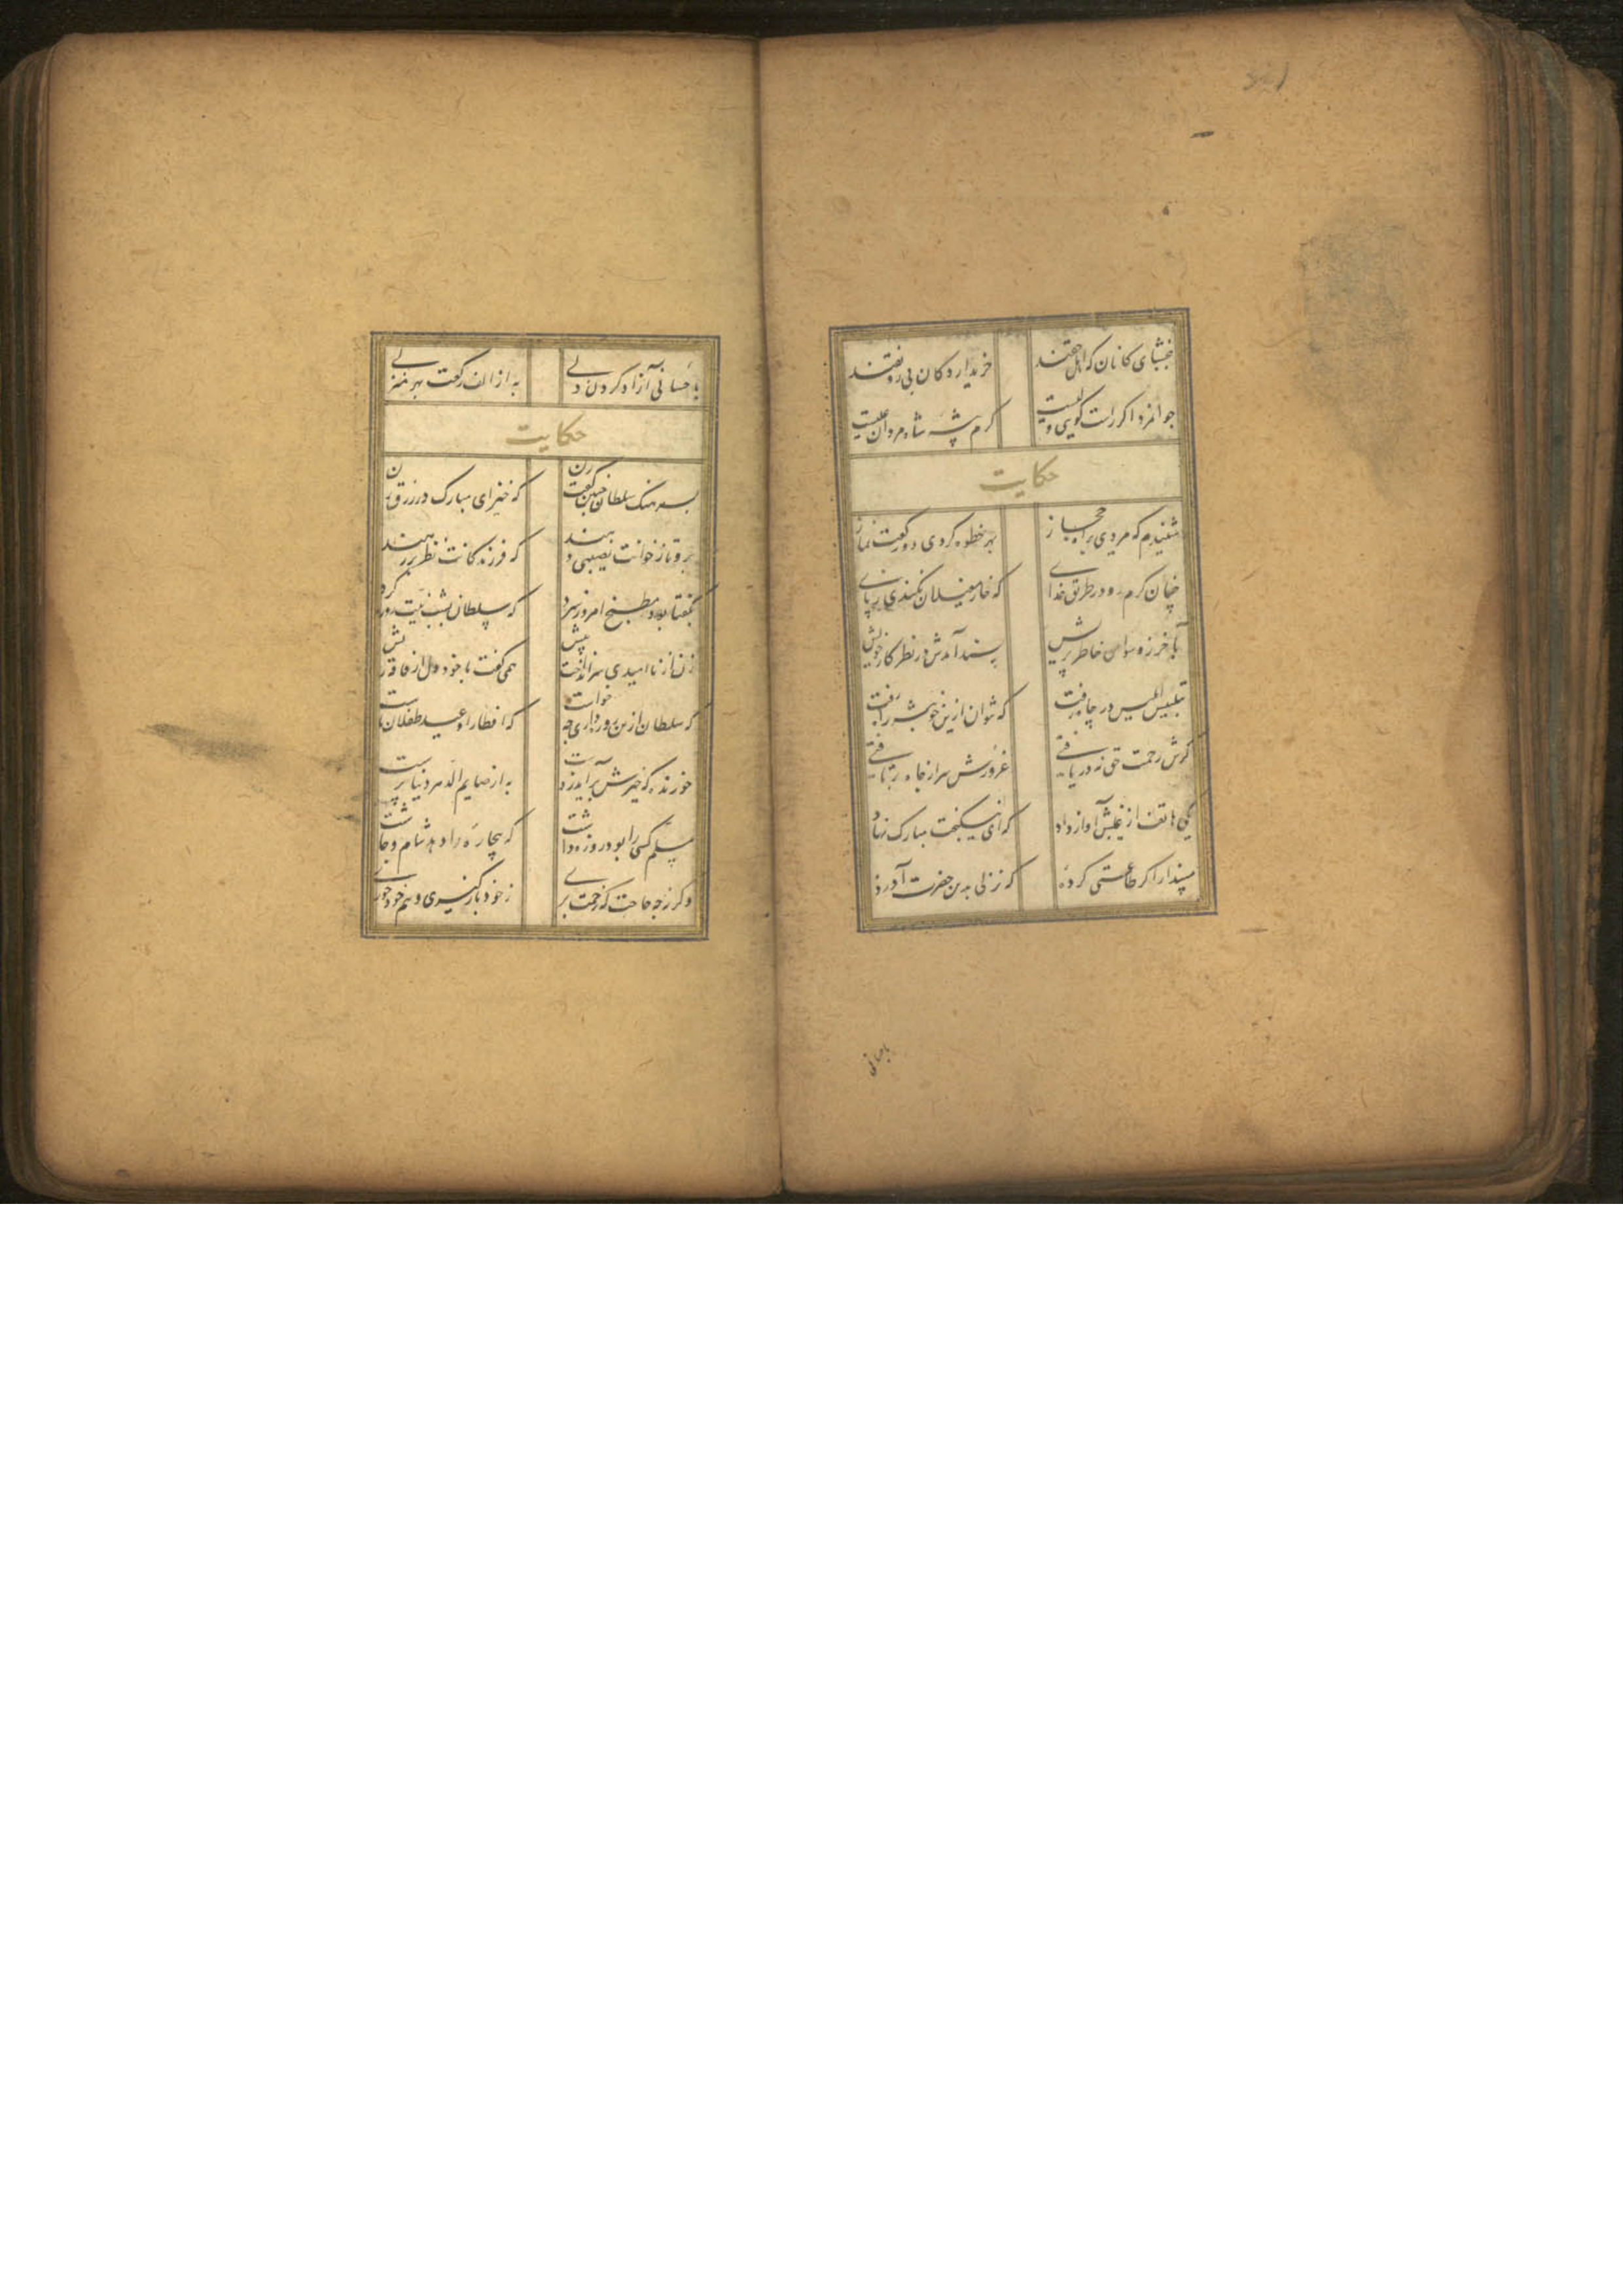 ببخشای کانان که اهل حقند خریدار دکان بی رونقند
جوانمرد اکر راست کویی ولیست کرم پیشه شاه مردان علیست
حکایت
شنیدم که مردی براه حجاز بهر خطوه کردی دو رکعت نماز
چنان کرم رو در طریق خدای که خار مغیلان نکندی ز پای
بآخر ز وسواس خاطر پریش پسند آمدش در نظر کار خویش
بتلبیس ابلیس در چاه رفت که نتوان ازین خوبتر راه رفت
کرش رحمت حق نه دریافتی غرورش سر از جاده برتافتی
یکی هاتف از غیبش آواز داد که ای نیکبخت مبارک نهاد
مپندار اکر طاعتی کرده که نزلی بدین حضرت آورده
باحسانی
باحسانی آزاد کردن دلی به از الف رکعت بهر منزلی
حکایت
بسرهنک سلطان چنین کفت زن که خیز ای مبارک در رزق زن
برو تا ز خوانت نصیبی دهند که فرزندکانت نظر بر رهند
بکفتا بود مطبخ امروز سرد که سلطان بشب نیت روزه کرد
زن از ناامیدی سر انداخت پیش همی کفت با خود دل از فاقه ریش
که سلطان ازین روزه داری چه خواست که افطار او عید طفلان ماست
خورنده که خیرش برآید ز دست به از صایم الدهر دنیا پرست
مسلم کسی را بود روزه داشت که بیچاره را دهد شام و چاشت
وکرنه چه حاجت که زحمت بری ز خود باز کیری و هم خود خوری